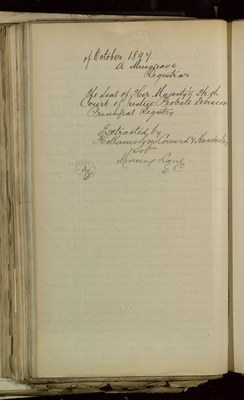 of October 1897
A Musgrave
Registrar
The Seal of Her Majesty's High
Court of Justice Probate Division
Principal Registry
Extracted by
Hollams Sons Coward & Hawksley
Mincing Lane
E C